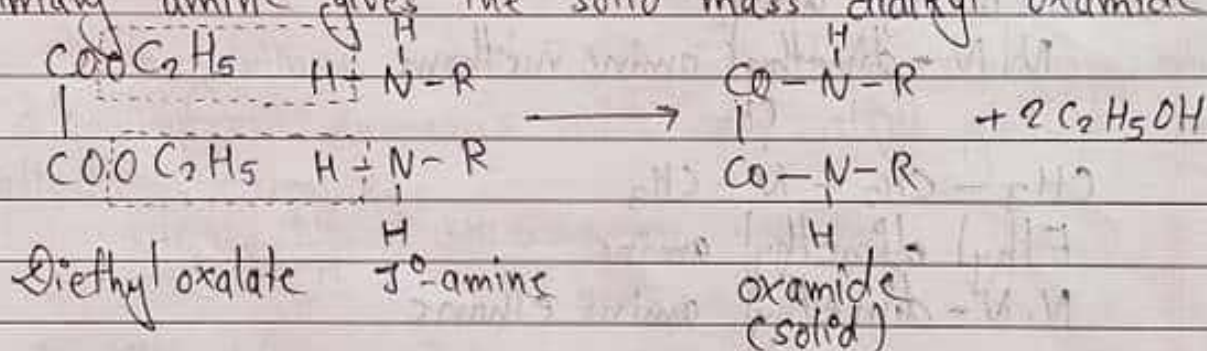 amine gives the solid mass dialkyl oxamide
COOC₂H₅ H-N-R CO-N-R
H H
⟶ + 2C₂H₅OH
COOC₂H₅ H-N-R CO-N-R
H H
Diethyl oxalate 1°-amine oxamide
(solid)